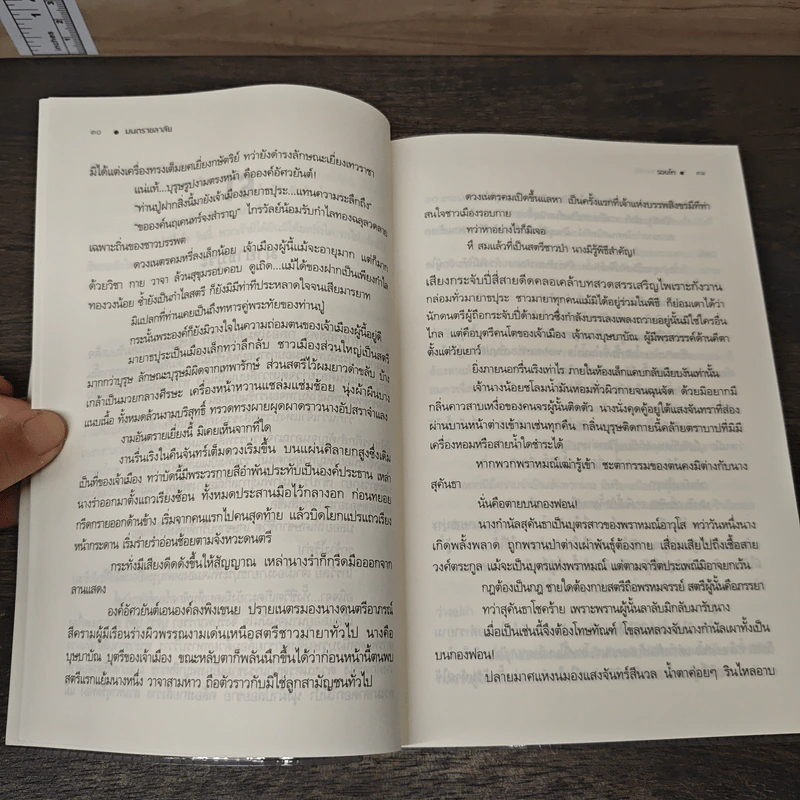 ๓๐ ● มนตราชลาลัย
มิได้แต่งเครื่องทรงเต็มยศเยี่ยงกษัตริย์ ทว่ายังดำรงลักษณะเยี่ยงเทวราชา
แน่แท้...บุรุษรูปงามตรงหน้า คือองค์อัศวยันต์!
“ท่านปู่ฝากสิ่งนี้มายังเจ้าเมืองมายาธปุระ...แทนความระลึกถึง”
“ขอองค์นฤเคนทร์จงสำราญ” ไกรวัลย์น้อมรับกำไลทองฉลุลวดลาย
เฉพาะถิ่นของชาวบรรพต
ดวงเนตรคมหรี่ลงเล็กน้อย เจ้าเมืองผู้นี้แม้จะอายุมาก แต่ก็มาก
ด้วยวิชา กาย วาจา ล้วนสุขุมรอบคอบ ดูเถิด...แม้ได้ของฝากเป็นเพียงกำไล
ทองวงน้อย ซ้ำยังเป็นกำไลสตรี ก็ยังมิมีท่าทีประหลาดใจจนเสียมารยาท
มิแปลกที่ท่านเคยเป็นถึงทหารคู่พระทัยของท่านปู่
กระนั้นพระองค์ก็ยังมิวางใจในความถ่อมตนของเจ้าเมืองผู้นี้อยู่ดี
มายาธปุระเป็นเมืองเล็กทว่าลึกลับ ชาวเมืองส่วนใหญ่เป็นสตรี
มากกว่าบุรุษ ลักษณะบุรุษมีผิดจากเทพารักษ์ ส่วนสตรีไว้ผมยาวดำขลับ บ้าง
เกล้าเป็นมวยกลางศีรษะ เครื่องหน้าหวานแซล่มแช่มช้อย นุ่งผ้าผืนบาง
แนบเนื้อ ทั้งหมดล้วนงามบริสุทธิ์ ทรวดทรงผายผุดผาดราวนางอัปสราจำแลง
งามอันตรายเยี่ยงนี้ มิเคยเห็นจากที่ใด
งานรื่นเริงในคืนจันทร์เต็มดวงเริ่มขึ้น บนแผ่นศิลายกสูงซึ่งเดิม
เป็นที่ของเจ้าเมือง ทว่าบัดนี้มีพระวรกายสีอำพันประทับเป็นองค์ประธาน เหล่า
นางรำออกมาตั้งแถวเรียงซ้อน ทั้งหมดประสานมือไว้กลางอก ก่อนทยอย
กรีดกรายออกด้านข้าง เริ่มจากคนแรกไปคนสุดท้าย แล้วบิดโยกแปรแถวเรียง
หน้ากระดาน เริ่มร่ายรำอ่อนช้อยตามจังหวะดนตรี
กระทั่งมีเสียงดีดดังขึ้นให้สัญญาณ เหล่านางรำก็กรีดมือออกจาก
ลานแสดง
องค์อัศวยันต์เอนองค์ลงพิงเขนย ปรายเนตรมองนางดนตรีอาภรณ์
สีครามผู้มีเรือนร่างผิวพรรณงามเด่นเหนือสตรีชาวมายาทั่วไป นางคือ
บุษบาบัณ บุตรีของเจ้าเมือง ขณะหลับตาก็พลันนึกขึ้นได้ว่าก่อนหน้านี้ตนพบ
สตรีแรกแย้มนางหนึ่ง วาจาสามหาว ถือตัวราวกับมิใช่ลูกสามัญชนทั่วไป
รอยรัก ● ๓๑
ดวงเนตรคมเปิดขึ้นแลหา เป็นครั้งแรกที่เจ้าแห่งบรรพสิงขรมีทีท่า
สนใจชาวเมืองรอบกาย
ทว่าหาอย่างไรก็มิเจอ
หึ สมแล้วที่เป็นสตรีชาวป่า นางมิรู้พิธีสำคัญ!
เสียงกระจับปี่สี่สายดีดคลอเคล้าบทสวดสรรเสริญไพเราะกังวาน
กล่อมทั่วมายาธปุระ ชาวมายาทุกคนแม้มิได้อยู่ร่วมในพิธี ก็ย่อมเดาได้ว่า
นักดนตรีผู้ถือกระจับปี่ด้ามยาวซึ่งกำลังบรรเลงเพลงถวายอยู่นั้นมิใช่ใครอื่น
ไกล แต่คือบุตรีคนโตของเจ้าเมือง เจ้านางบุษบาบัณ ผู้มีพรสวรรค์ด้านคีตา
ตั้งแต่วัยเยาว์
ยิ่งภายนอกรื่นเริงเท่าไร ภายในห้องเล็กแคบกลับเงียบงันเท่านั้น
เจ้านางน้อยชโลมน้ำมันหอมทั่วผิวกายจนฉุนจัด ด้วยมิอยากมี
กลิ่นคาวสาบเหงื่อของคนจรผู้นั้นติดตัว นางนั่งคุดคู้อยู่ใต้แสงจันทราที่ส่อง
ผ่านบานหน้าต่างเข้ามาเช่นทุกคืน กลิ่นบุรุษติดกายนี้คล้ายตราบาปที่มิมี
เครื่องหอมหรือสายน้ำใดชำระได้
หากพวกพราหมณ์เฒ่ารู้เข้า ชะตากรรมของตนคงมิต่างกับนาง
สุคันธา
นั่นคือตายบนกองฟอน!
นางกำนัลสุคันธาเป็นบุตรสาวของพราหมณ์อาวุโส ทว่าวันหนึ่งนาง
เกิดพลั้งพลาด ถูกพรานป่าต่างเผ่าพันธุ์ต้องกาย เสื่อมเสียไปถึงเชื้อสาย
วงศ์ตระกูล แม้จะเป็นบุตรแห่งพราหมณ์ แต่ตามจารีตประเพณีมิอาจยกเว้น
กฎต้องเป็นกฎ ชายใดต้องกายสตรีถือพรหมจรรย์ สตรีผู้นั้นคือภรรยา
ทว่าสุคันธาโชคร้าย เพราะพรานผู้นั้นลาลับมิกลับมารับนาง
เมื่อเป็นเช่นนี้จึงต้องโทษทัณฑ์ โขลนหลวงจับนางกำนัลเผาทั้งเป็น
บนกองฟอน!
ปลายมาศแหงนมองแสงจันทร์สีนวล น้ำตาค่อยๆ รินไหลอาบ